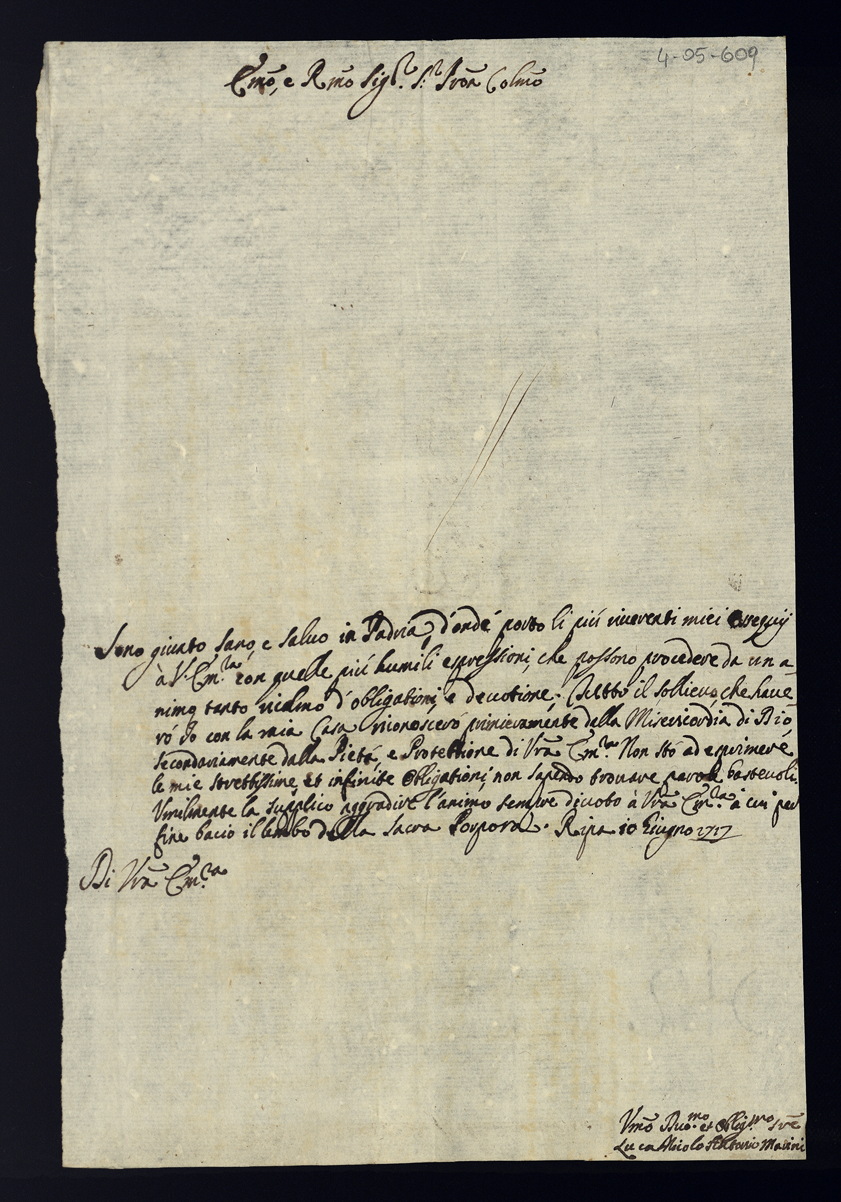 4-05-609
Emo, e Rmo Sigr. Sr. Pron Colmo
Sono giunto sano, e salvo in Padria, d'onde porto li più riverenti miei ossequij
à V. Em.za con quelle più humili espressioni, che possono procedere da un a-
nimo tanto ricolmo d'obligationi, e devotione. Tutto il sollievo, che have-
rò Io con la mia Casa riconoscerò primieramente dalla Misericordia di Dio,
secondariamente dalla Pietà, e Protettione di Vra Em.za Non stò ad esprimere
le mie strettissime, et infinite obligationi, non sapendo trovare parole bastevoli.
Umilmente la supplico aggradire l'animo sempre divoto à Vra Em.za à cui per
fine bacio il lembo della Sacra Porpora. Ripa 10 Giugno 1717
Di Vra Em.za
Vmo Duo.mo et Oblig.mo Sre
Luca Antonio Marini